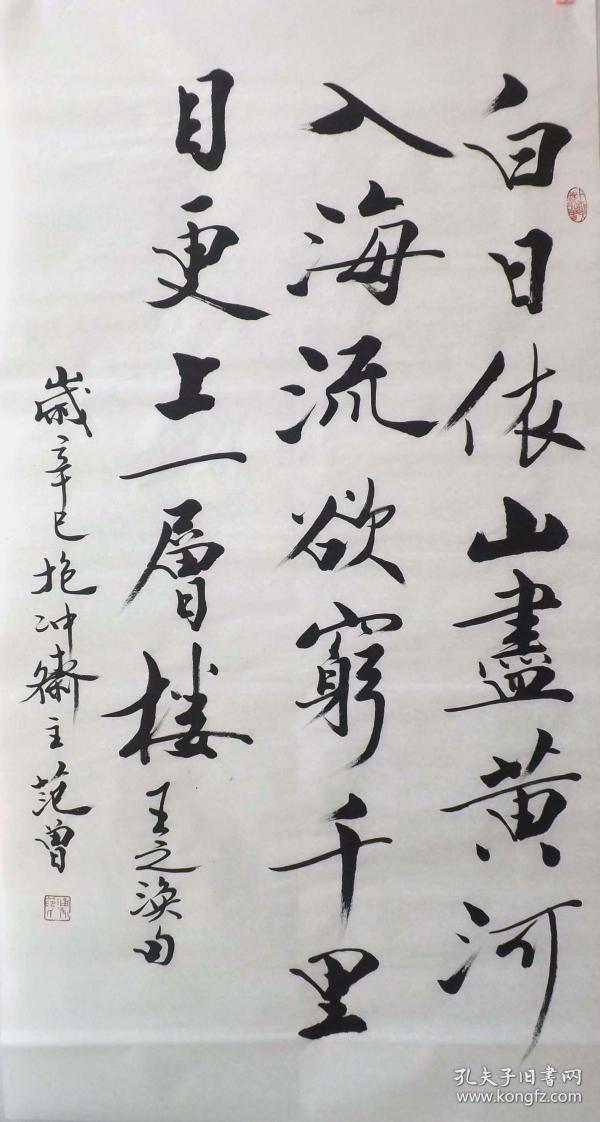 白日依山盡黄河
入海流欲窮千里
目更上一層楼
王之涣句
歲辛巳抱冲齋主范曾
孔夫子旧書网
www.kongfz.com